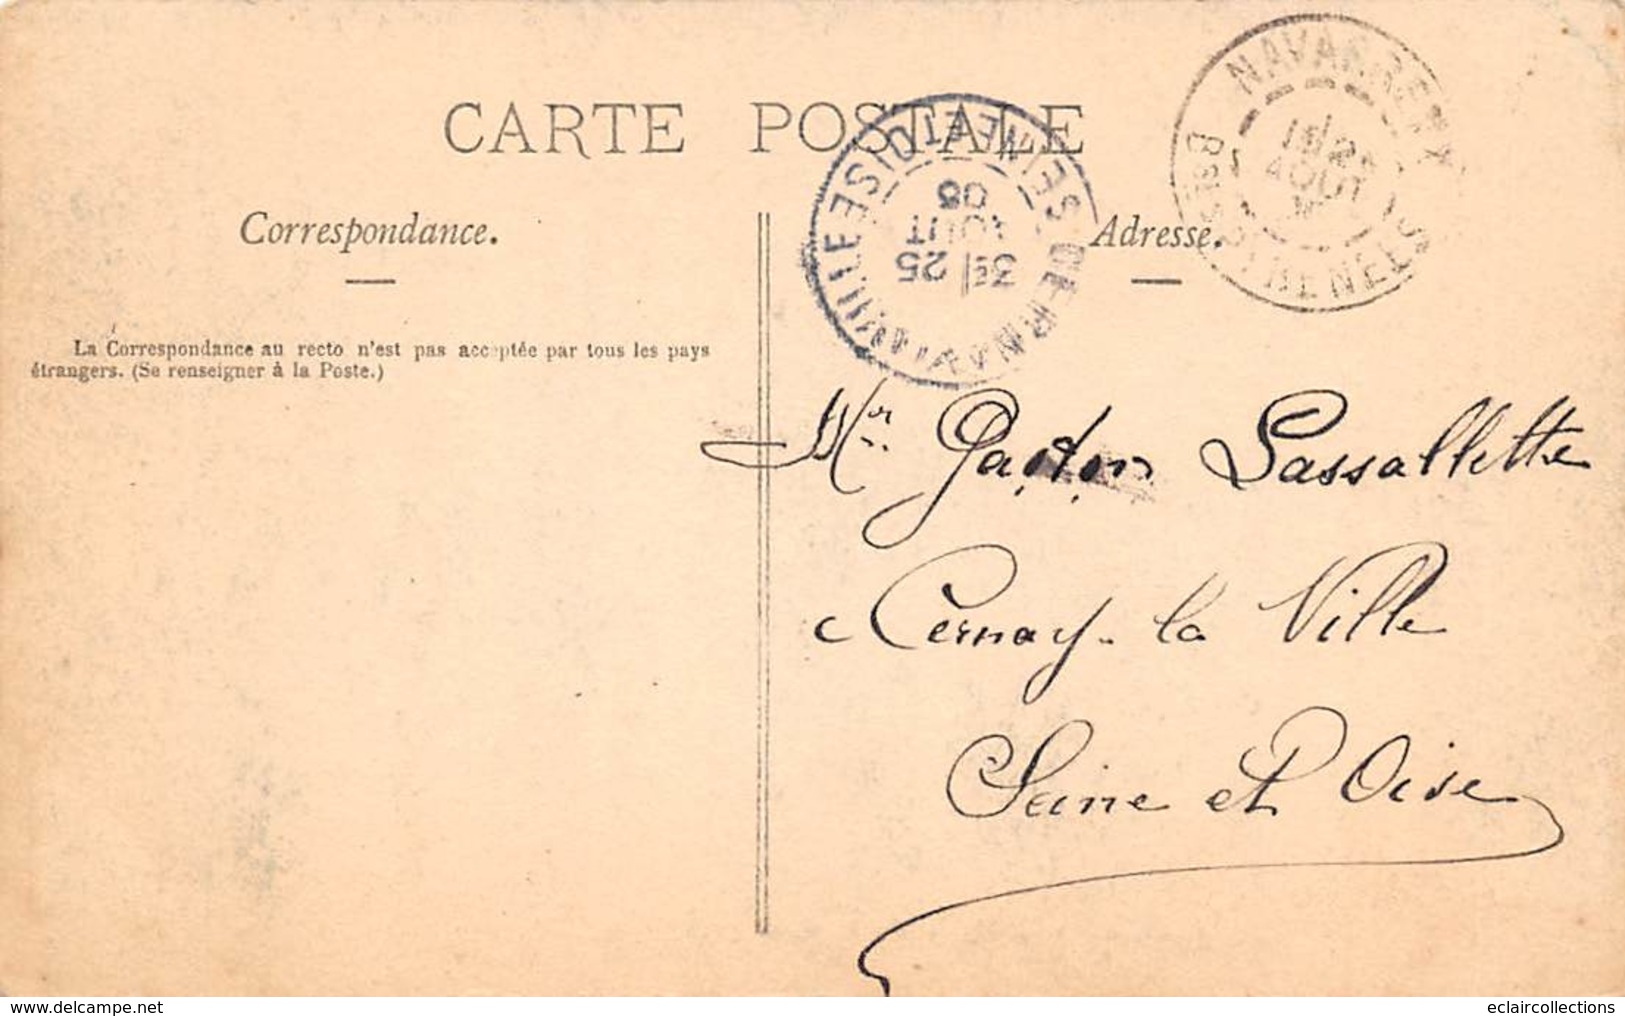 CARTE POSTALE
Correspondance.
Adresse.
La Correspondance au recto n'est pas acceptée par tous les pays
étrangers. (Se renseigner à la Poste.)
NAVARRENX
AOUT
BSES PYRENEES
SEINE ET OISE
3E 25
AOUT
08
Mr Gaston Lassallette
Cernay-la Ville
Seine et Oise
www.delcampe.net
eclaircollections